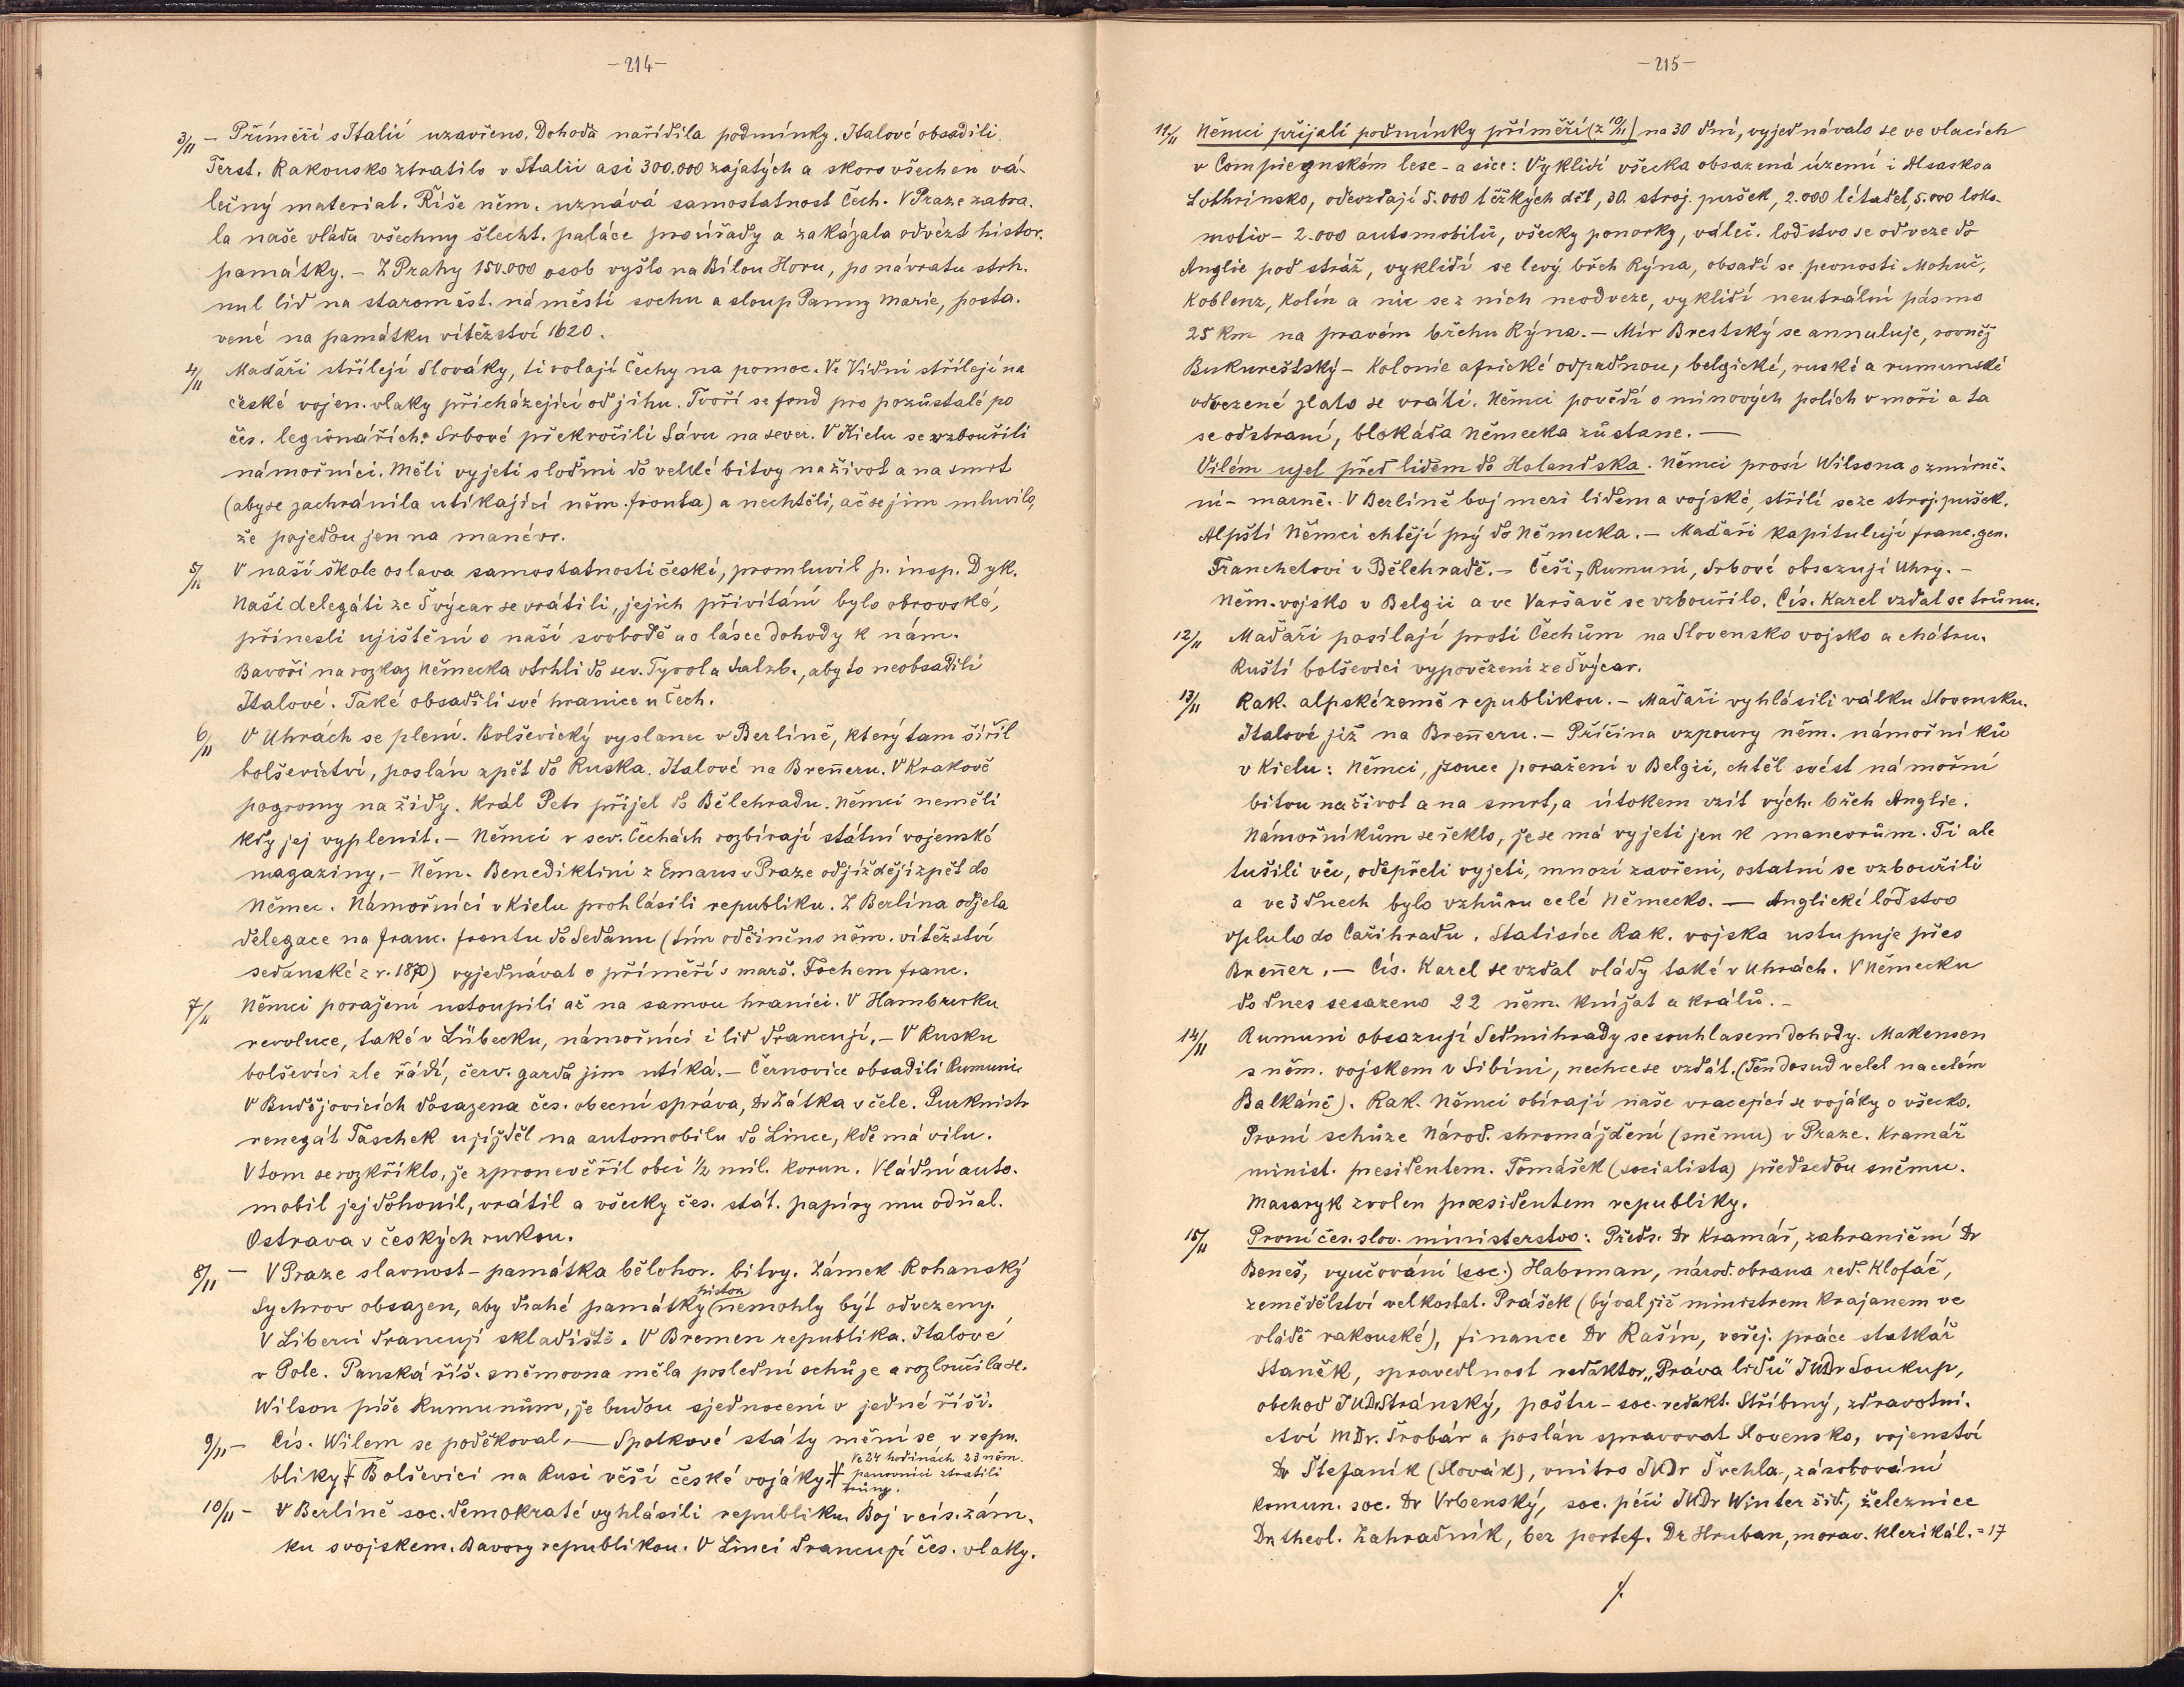 -214-
3/11 - Příměří s Italií uzavřeno. Dohoda nařídila podmínky. Italové obsadili
Terst. Rakousko ztratilo v Italii asi 300.000 zajatých a skoro všechen vá-
lečný material. Říše něm. uznává samostatnost Čech. V Praze zabra-
la naše vláda všechny šlecht. paláce pro úřady a zakázala odvézt histor.
památky. - Z Prahy 150.000 osob vyšlo na Bílou Horu, po návratu strh-
nul lid na staroměst. náměstí sochu a sloup Panny Marie, posta-
vené na památku vítězství 1620.
4/11 Maďaři střílejí Slováky, ti volají Čechy na pomoc. Ve Vídni střílejí na
české vojen. vlaky přicházející od jihu. Tvoří se fond pro pozůstalé po
čes. legionářích. Srbové překročili Sávu na sever. V Kielu se vzbouřili
námořníci. Měli vyjeti s loďmi do velké bitvy na život a na smrt
(aby se zachránila utíkající něm. fronta) a nechtěli, ač se jim mluvilo,
že pojedou jen na manévr.
5/11 V naší škole oslava samostatnosti české, promluvil p. insp. Dyk.
Naši delegáti ze Švýcar se vrátili, jejich přivítání bylo obrovské,
přinesli ujištění o naší svobodě a o lásce dohody k nám.
Bavoři na rozkaz Německa vtrhli do sev. Tyrol a Salzb., aby to neobsadili
Italové. Také obsadili své hranice u Čech.
6/11 V Uhrách se plení. Bolševický vyslanec v Berlíně, který tam šířil
bolševictví, poslán zpět do Ruska. Italové na Breneru. V Krakově
pogromy na židy. Král Petr přijel do Bělehradu. Němci neměli
kdy jej vyplenit. - Němci v sev. Čechách rozbírají státní vojenské
magaziny. - Něm. Benediktini z Emaus v Praze odjíždějí zpět do
Němec. Námořníci v Kielu prohlásili republiku. Z Berlína odjela
delegace na franc. frontu do Sedanu (tím odčiněno něm. vítězství
sedanské z r. 1870) vyjednávat o příměří s marš. Fochem franc.
7/11 Němci poraženi ustoupili až na samou hranici. V Hamburku
revoluce, také v Lübecku, námořníci i lid drancují. - V Rusku
bolševici zle řádí, červ. garda jim utíká. - Černovice obsadili Rumuni.
V Budějovicích dosazena čes. obecní správa, Dr Zátka v čele. Purkmistr
renegát Taschek ujížděl na automobilu do Lince, kde má vilu.
V tom se rozkřiklo, že zpronevěřil obci 1/2 mil. korun. Vládní auto-
mobil jej dohonil, vrátil a všecky čes. stát. papíry mu odňal.
Ostrava v českých rukou.
8/11 - V Praze slavnost - památka bělohor. bitvy. Zámek Rohanský
Sychrov obsazen, aby drahé památky (histor. nemohly být odvezeny.
V Liberci drancují skladiště. V Bremen republika. Italové
v Pole. Panská říš. sněmovna měla poslední schůze a rozloučila se.
Wilson píše Rumunům, že budou sjednoceni v jedné říši.
9/11 - Cís. Wilem se poděkoval. - Spolkové státy mění se v repu-
bliky. Bolševici na Rusi věší české vojáky. Ve 24 hodinách 23 něm.
panovníci ztratili
trůny.
10/11 - V Berlíně soc. demokraté vyhlásili republiku. Boj v cís. zám-
ku s vojskem. Bavory republikou. V Linci drancují čes. vlaky.
-215-
11/11 Němci přijali podmínky příměří (z 10/11) na 30 dní, vyjednávalo se ve vlacích
v Compiegnském lese - a sice: Vyklidí všecka obsazená území i Alsasko a
Lothrinsko, odevzdají 5.000 těžkých děl, 30. stroj. pušek, 2.000 létadel, 5.000 loko-
motiv - 2.000 automobilů, všecky ponorky, váleč. loďstvo se odveze do
Anglie pod stráž, vyklidí se levý břeh Rýna, obsadí se pevnosti Mohuč,
Koblenz, Kolín a nic se z nich neodveze, vyklidí neutrální pásmo
25 km na pravém břehu Rýna. - Mír Brestský se annuluje, rovněž
Bukureštský - Kolonie africké odpadnou, belgické, ruské a rumunské
odvezené zlato se vrátí. Němci povědí o minových polích v moři a ta
se odstraní, blokáda Německa zůstane. -
Vilém ujel před lidem do Holandska. Němci prosí Wilsona o zmírně-
ní - marně. V Berlíně boj mezi lidem a vojské, střílí se ze stroj. pušek.
Alpští Němci chtějí prý do Německa. - Maďaři kapitulují franc. gen.
Franchetovi v Bělehradě. - Češi, Rumuni, Srbové obsazují Uhry. -
Něm. vojsko v Belgii a ve Varšavě se vzbouřilo. Cís. Karel vzdal se trůnu.
12/11 Maďaři posílají proti Čechům na Slovensko vojsko a chátru.
Ruští bolševici vypovězeni ze Švýcar.
13/11 Rak. alpské země republikou. - Maďaři vyhlásili válku Slovensku.
Italové již na Breneru. - Příčina vzpoury něm. námořníků
v Kielu: Němci, jsouce poraženi v Belgii, chtěl svést námořní
bitvu na život a na smrt, a útokem vzít vých. břeh Anglie.
Námořníkům se řeklo, že se má vyjeti jen k manevrům. Ti ale
tušili věc, odepřeli vyjeti, mnozí zavřeni, ostatní se vzbouřili
a ve 3 dnech bylo vzhůru celé Německo. - Anglické loďstvo
vplulo do Cařihradu. Statisíce Rak. vojska ustupuje přes
Brener. - Cís. Karel se vzdal vlády také v Uhrách. V Německu
do dnes sesazeno 22 něm. knížat a králů. -
14/11 Rumuni obsazují Sedmihrady se souhlasem dohody. Makensen
s něm. vojskem v Sibíni, nechce se vzdát. (Ten dosud velel na celém
Balkáně). Rak. Němci obírají naše vracející se vojáky o všecko.
První schůze Národ. shromáždění (sněmu) v Praze. Kramář
minist. presidentem. Tomášek (socialista) předsedou sněmu.
Masaryk zvolen presidentem republiky.
15/11 První čes. slov. ministerstvo: Předs. Dr Kramář, zahraniční Dr
Beneš, vyučování (soc.) Habrman, národ. obrana red. Klofáč,
zemědělství velkostat. Prášek (býval již ministrem krajanem ve
vládě rakouské), finance Dr Rašín, veřej. práce statkář
Staněk, spravedlnost redaktor „Práva lidu" JUDr Soukup,
obchod JUDr Stránský, poštu - soc. redakt. Stříbrný, zdravotni-
ctví MDr. Šrobár a poslán spravovat Slovensko, vojenství
Dr Štefaník (Slovák), vnitro JUDr Švehla, zásobování
komun. soc. Dr Vrbenský, soc. péči JUDr Winter žid, železnice
Dr. theol. Zahradník, bez portef. Dr Hruban, morav. klerikál. = 17
./.